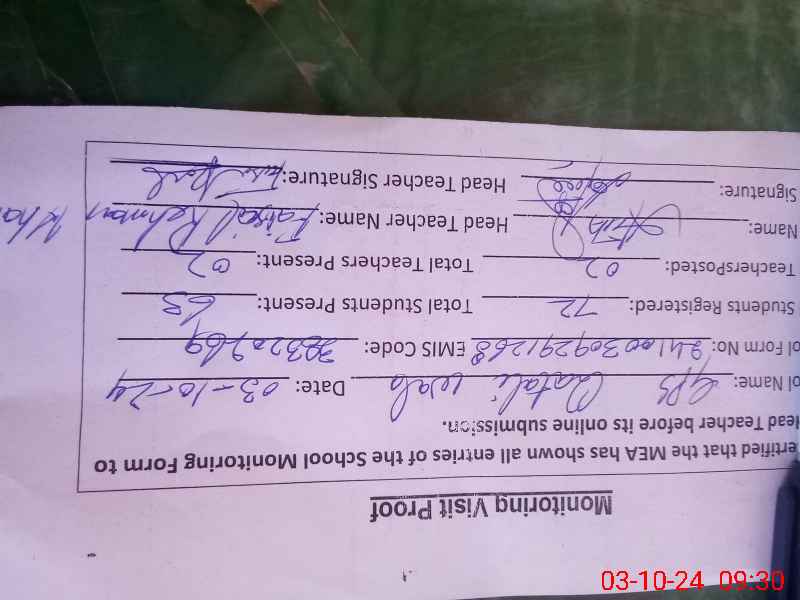 Monitoring Visit Proof
ertified that the MEA has shown all entries of the School Monitoring Form to
Head Teacher before its online submission.
ol Name: GPS Wala Date: 03-10-24
ol Form No: EMIS Code:
Students Registered: 72 Total Students Present: 63
TeachersPosted: 02 Total Teachers Present: 02
Name: Head Teacher Name: Faisal Rehman Khan
Signature: Head Teacher Signature:
03-10-24 09:30